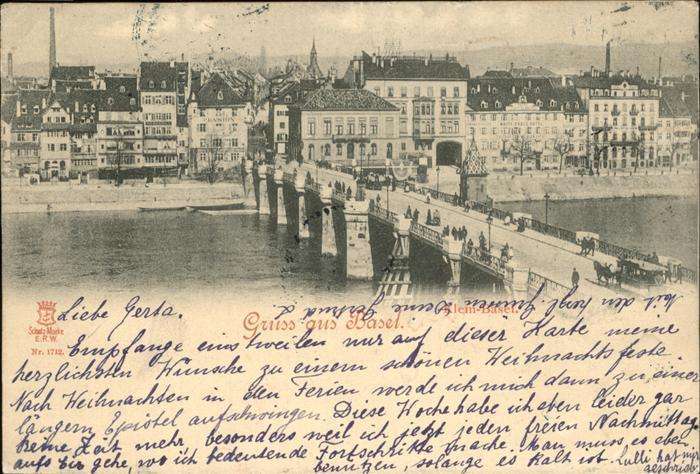 Klein-Basel.
Gruss aus Basel.
Schutz-Marke
E.R.W.
Nr. 1712.
Liebe Gerta.
Empfange einstweilen nur auf dieser Karte meine
herzlichsten Wünsche zu einem schönen Weihnachtsfeste.
Nach Weihnachten in den Ferien werde ich mich dann zu einer
längern Epistel aufschwingen. Diese Woche habe ich eben leider gar
keine Zeit mehr, besonders weil ich jetzt jeden freien Nachmittag
aufs Eis gehe, wo ich bedeutende Fortschritte mache. Man muss es eben
benützen, solange es kalt ist. Lulli hat mir
Mit den besten Grüssen Deine Gertrud